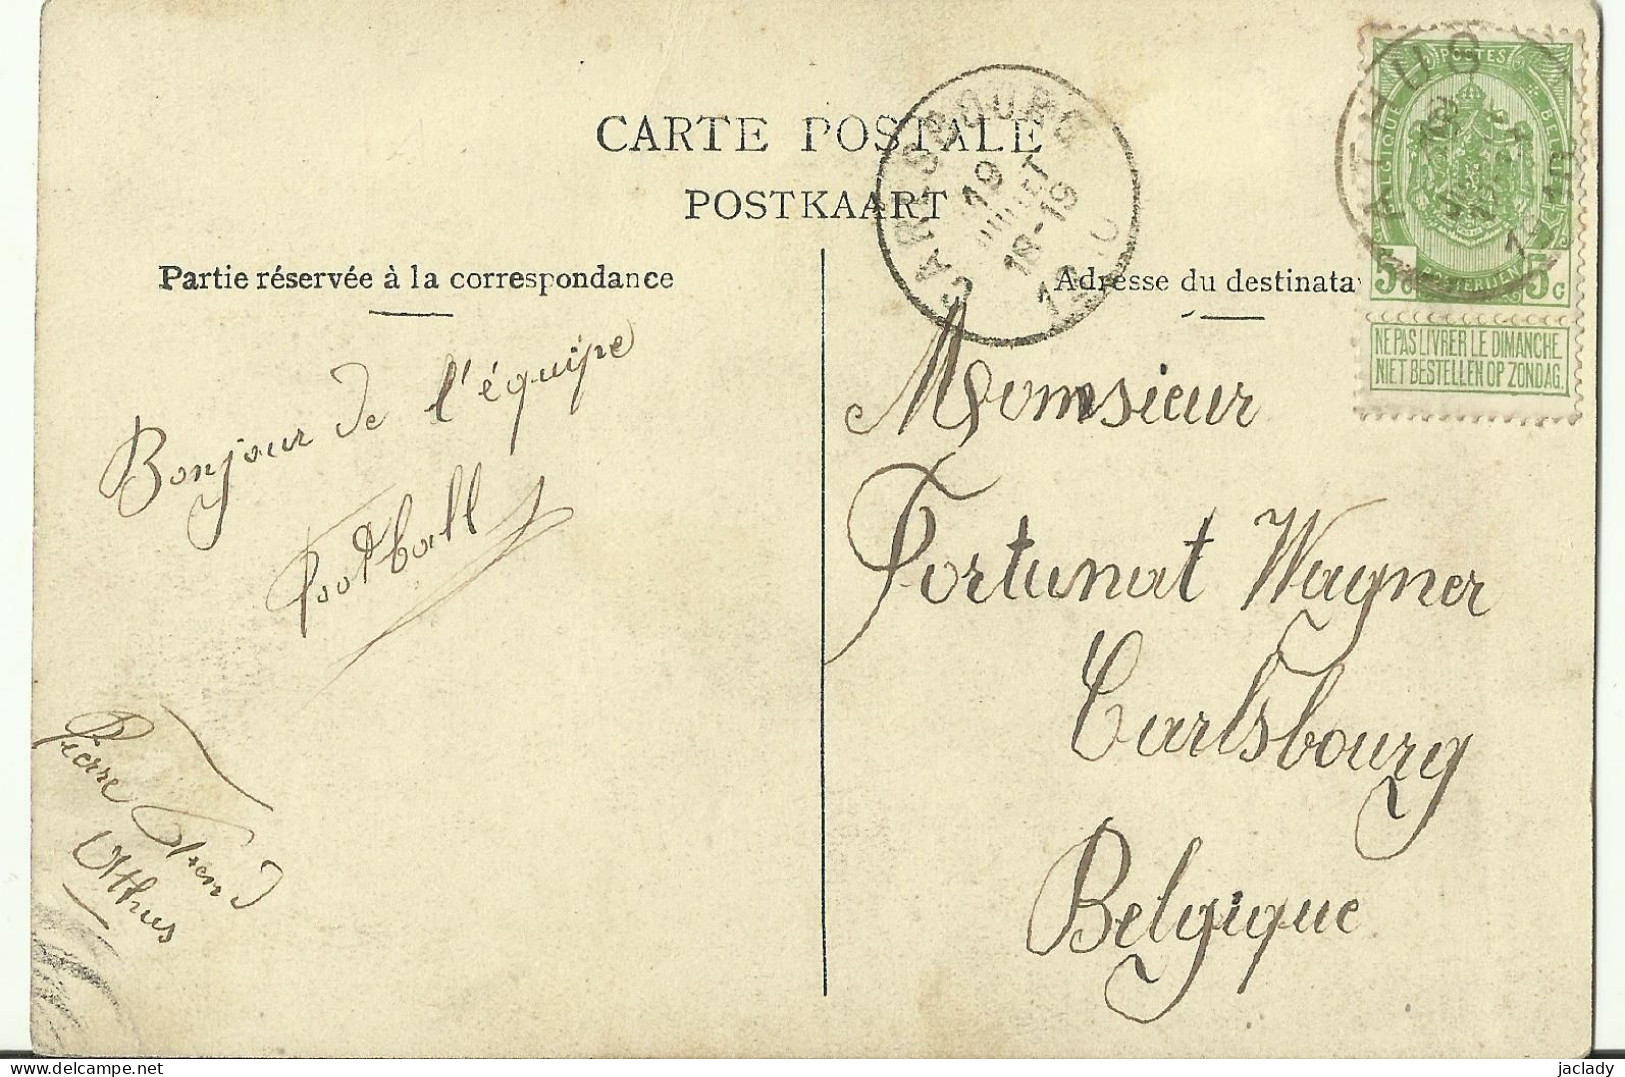 CARTE POSTALE
POSTKAART
Partie réservée à la correspondance
Adresse du destinata
CARLSBOURG
19
JUILLET
18-19
ATHUS
19
1910
POSTES
BELGIQUE
BELGIË
POSTERIJEN
5c 5c
NE PAS LIVRER LE DIMANCHE
NIET BESTELLEN OP ZONDAG.
Bonjour de l'équipe
Football
Pierre
Athus
Monsieur
Fortunat Wagner
Carlsbourg
Belgique
delcampe.net
jaclady